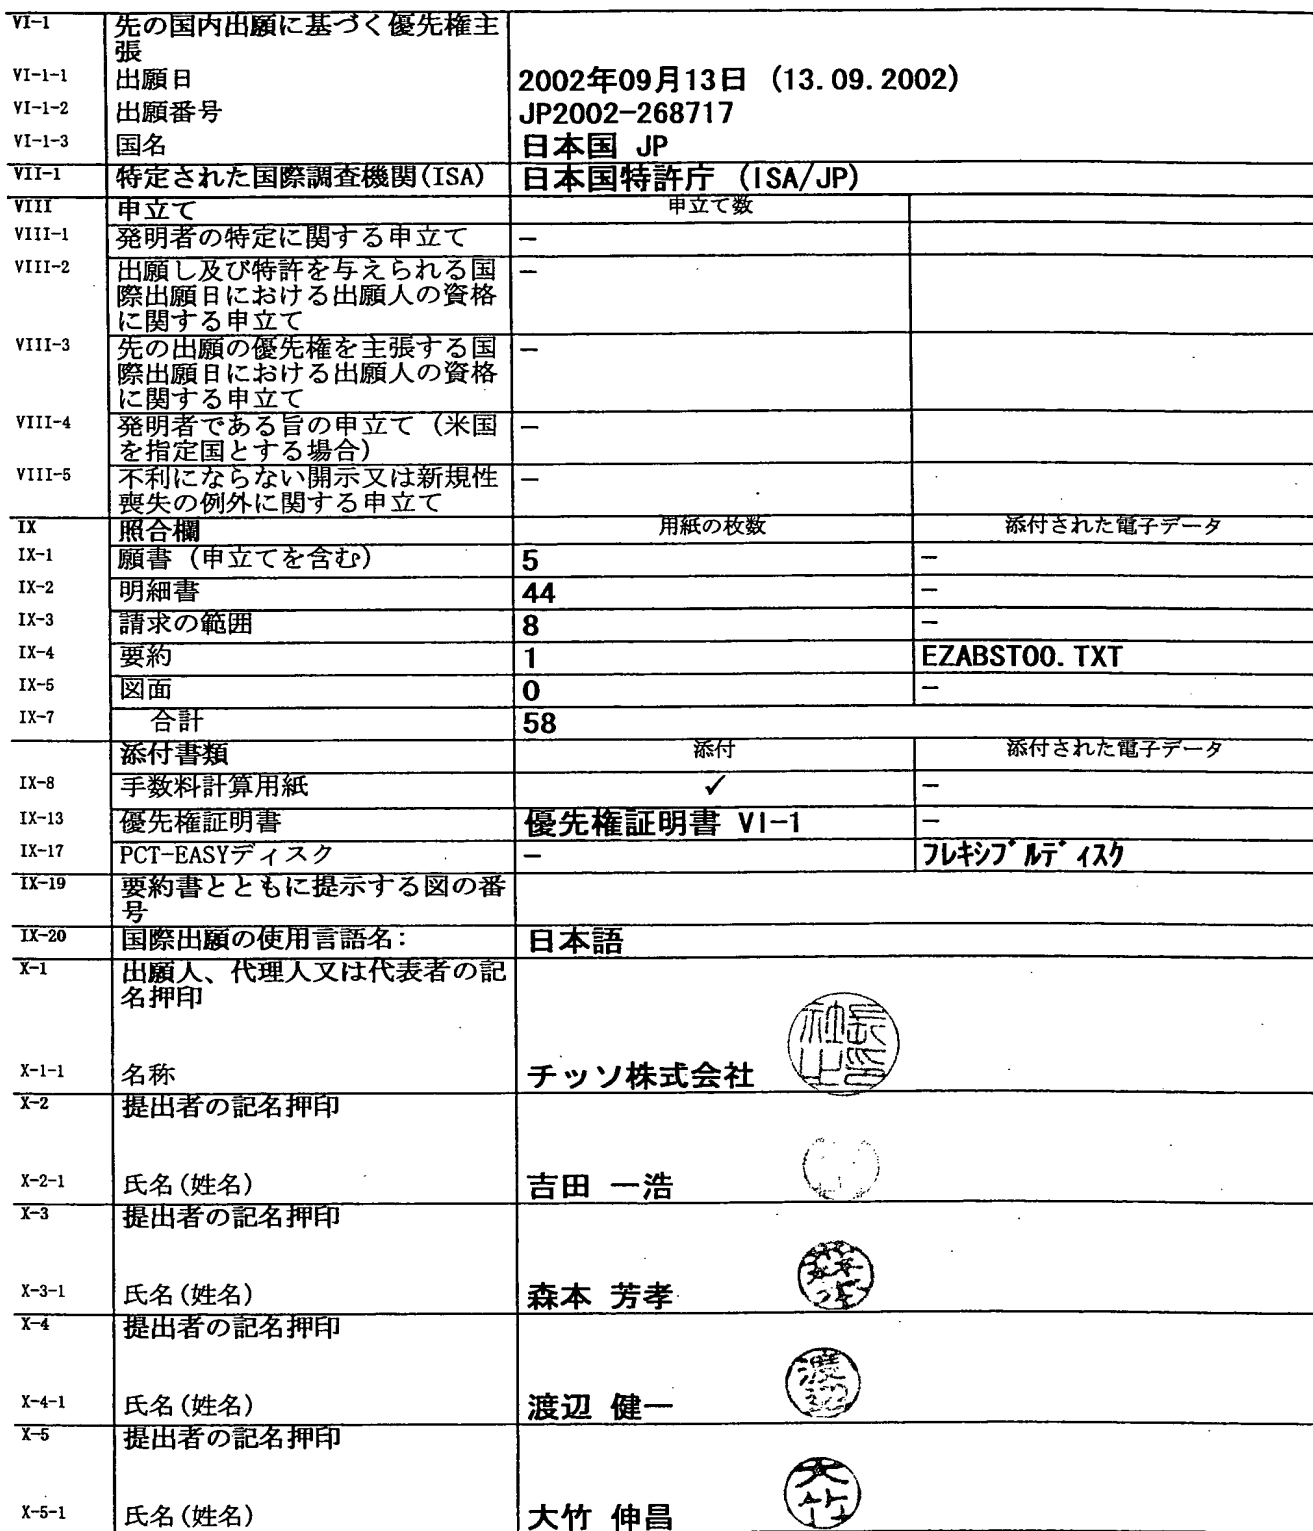 VI-1 先の国内出願に基づく優先権主
張
VI-1-1 出願日 2002年09月13日 (13.09.2002)
VI-1-2 出願番号 JP2002-268717
VI-1-3 国名 日本国 JP
VII-1 特定された国際調査機関(ISA) 日本国特許庁 (ISA/JP)
VIII 申立て 申立て数
VIII-1 発明者の特定に関する申立て -
VIII-2 出願し及び特許を与えられる国 -
際出願日における出願人の資格
に関する申立て
VIII-3 先の出願の優先権を主張する国 -
際出願日における出願人の資格
に関する申立て
VIII-4 発明者である旨の申立て (米国 -
を指定国とする場合)
VIII-5 不利にならない開示又は新規性 -
喪失の例外に関する申立て
IX 照合欄 用紙の枚数 添付された電子データ
IX-1 願書 (申立てを含む) 5 -
IX-2 明細書 44 -
IX-3 請求の範囲 8 -
IX-4 要約 1 EZABST00.TXT
IX-5 図面 0 -
IX-7 合計 58
添付書類 添付 添付された電子データ
IX-8 手数料計算用紙 ✓ -
IX-13 優先権証明書 優先権証明書 VI-1 -
IX-17 PCT-EASYディスク - フレキシブルディスク
IX-19 要約書とともに提示する図の番
号
IX-20 国際出願の使用言語名: 日本語
X-1 出願人、代理人又は代表者の記
名押印
X-1-1 名称 チッソ株式会社
X-2 提出者の記名押印
X-2-1 氏名(姓名) 吉田 一浩
X-3 提出者の記名押印
X-3-1 氏名(姓名) 森本 芳孝
X-4 提出者の記名押印
X-4-1 氏名(姓名) 渡辺 健一
X-5 提出者の記名押印
大竹
X-5-1 氏名(姓名) 大竹 伸昌